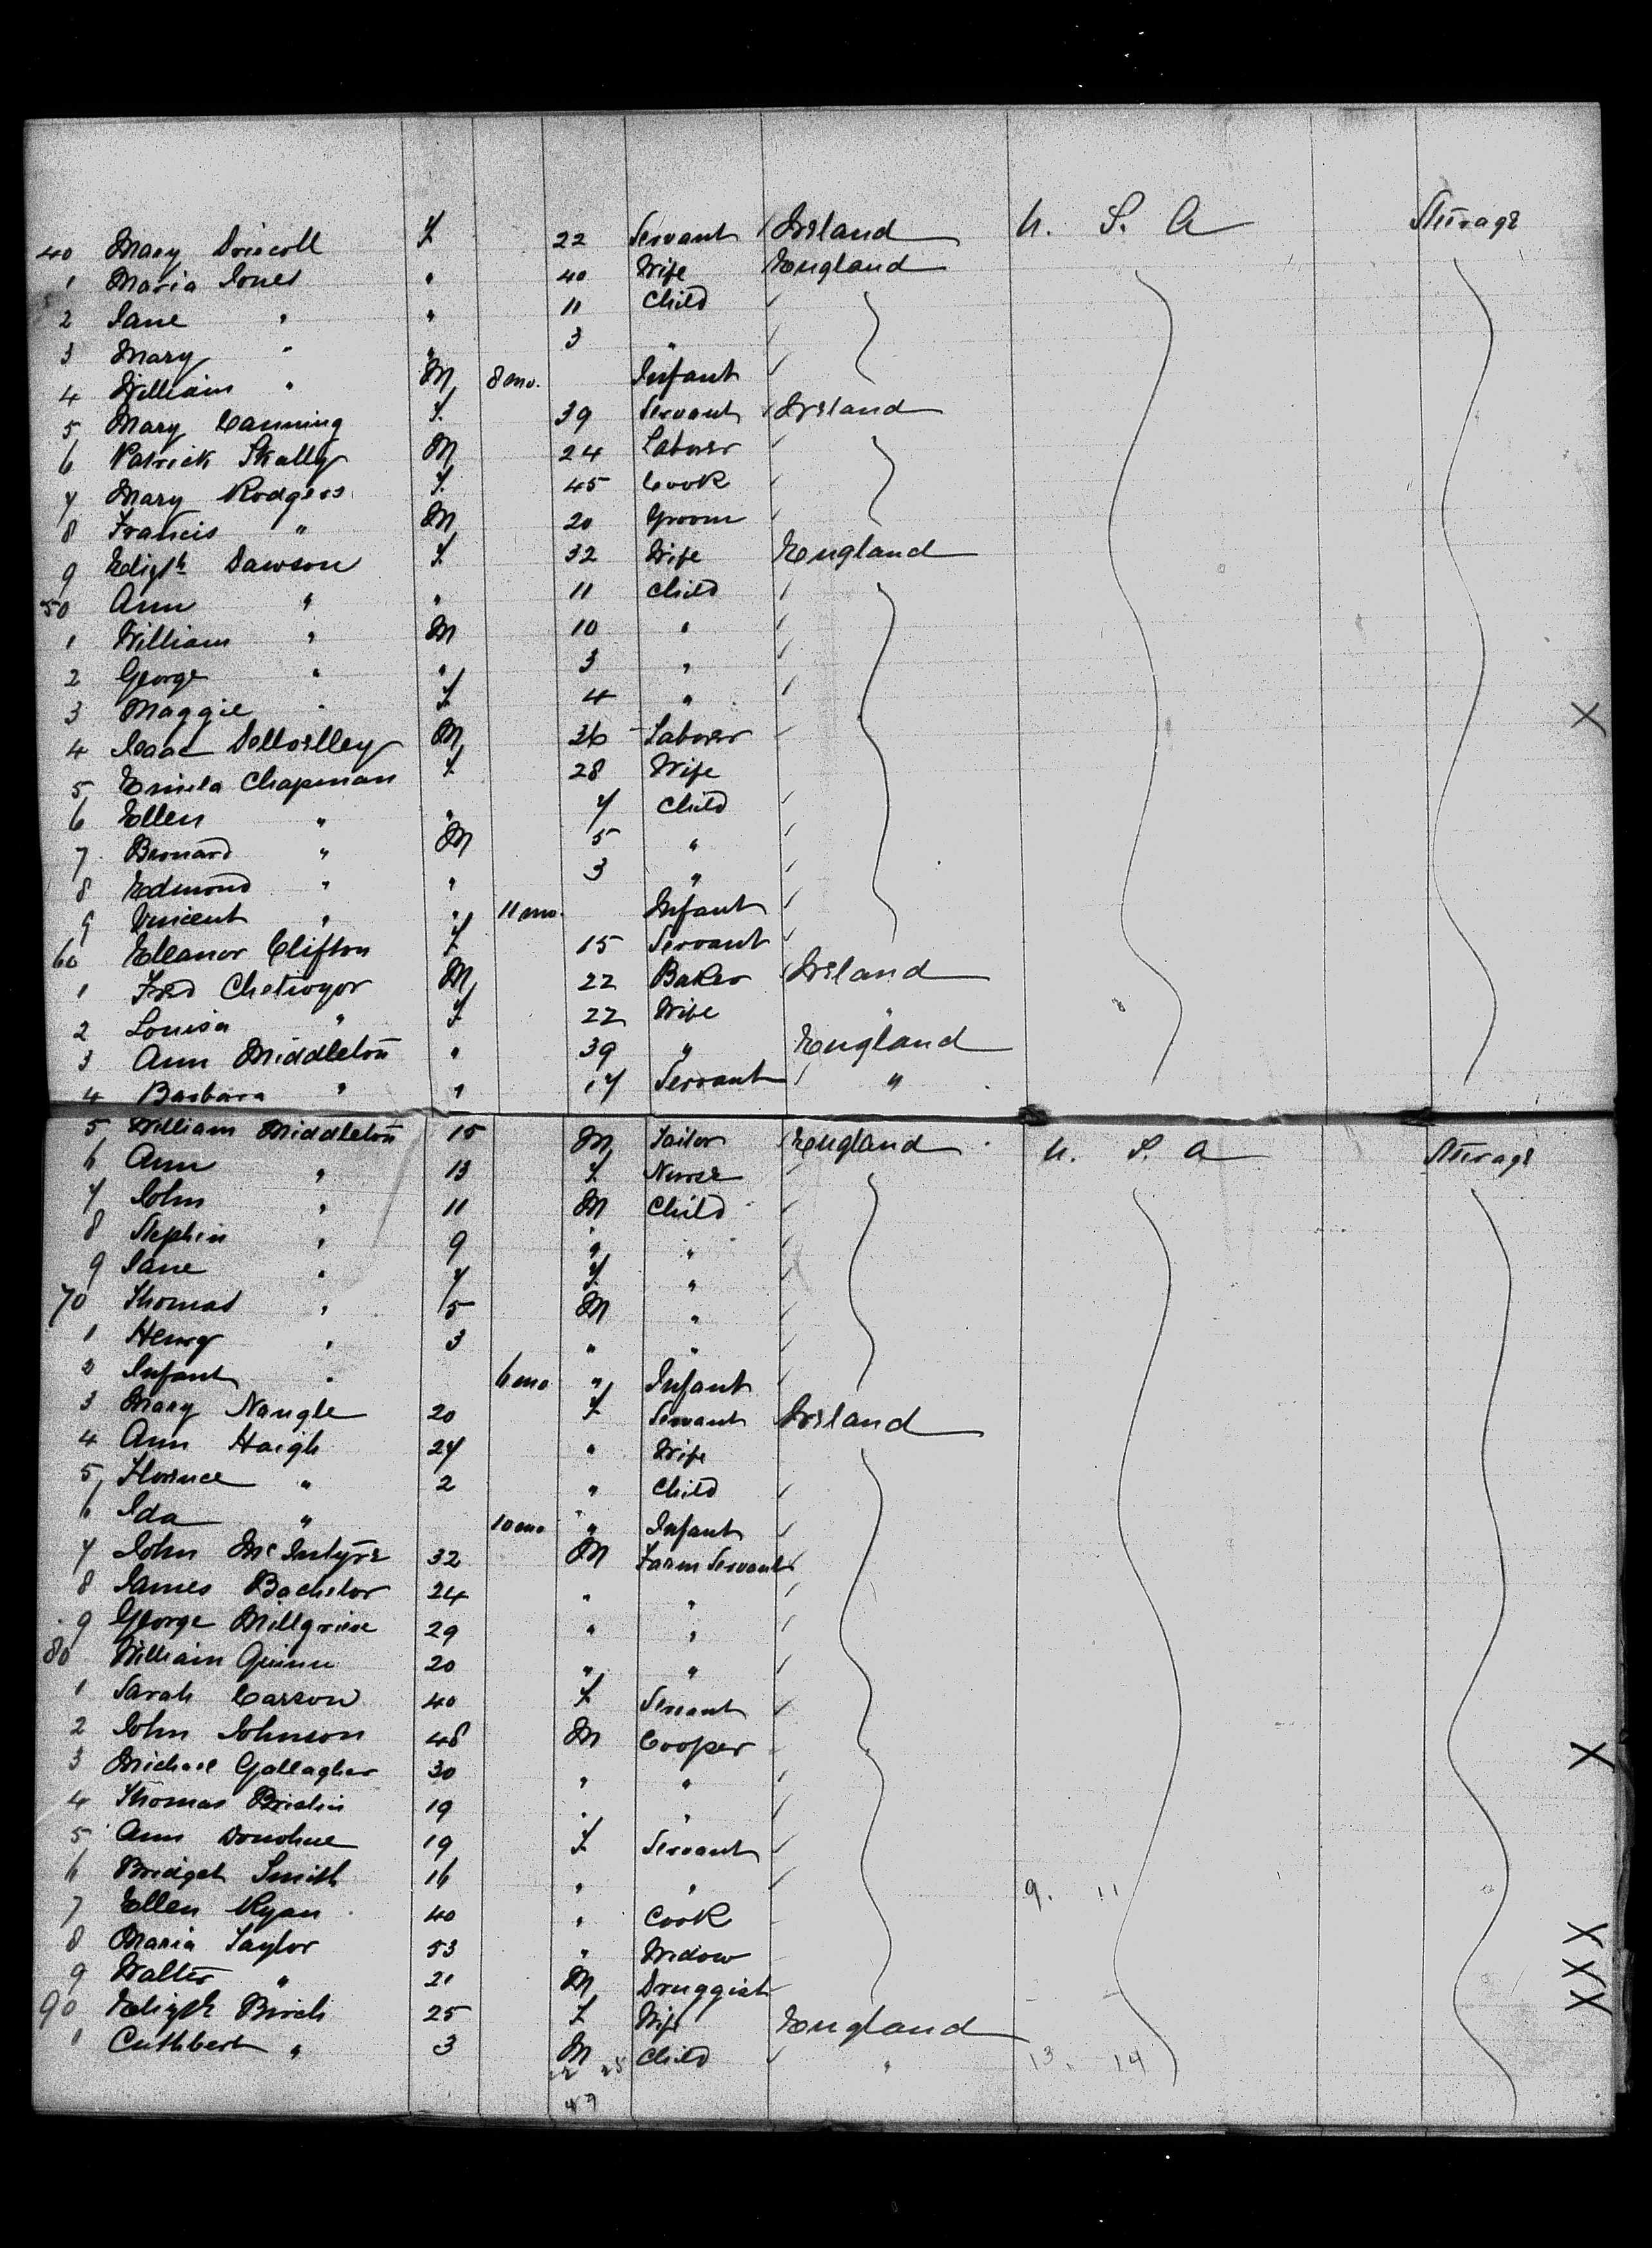 40 Mary Driscoll F 22 Servant Ireland U. S. A Steerage
1 Maria Jones " 40 Wife England
2 Jane " " 11 Child
3 Mary " " 3 "
4 William " M 8 mo. Infant
5 Mary Canning F 39 Servant Ireland
6 Patrick Skally M 24 Laborer
7 Mary Rodgers F 45 Cook
8 Francis " M 20 Groom
9 Elizth Dawson F 32 Wife England
50 Ann " " 11 Child
1 William " M 10 "
2 George " " 3 "
3 Maggie " F 4 "
4 Isaac M 36 Laborer X
5 Chapman F 28 Wife
6 Ellen " " 7 Child
7 Bernard " M 5 "
8 Edmond " " 3 "
9 Vincent " " 11 mo. Infant
60 Eleanor Clifton F 15 Servant
1 Fred M 22 Baker Ireland
2 Louisa " F 22 Wife "
3 Ann Middleton " 39 " England
4 Barbara " " 17 Servant "
5 William Middleton 15 M Tailor England U. S. A Steerage
6 Ann " 13 F Nurse
7 John " 11 M Child
8 Stephen " 9 " "
9 Jane " 7 F "
70 Thomas " 5 M "
1 Henry " 3 " "
2 Infant " 6 mo " Infant
3 Mary Nangle 20 F Servant Ireland
4 Ann Haigh 27 " Wife
5 Florence " 2 " Child
6 Ida " 10 mo " Infant
7 John McIntyre 32 M Farm Servant
8 James Bachelor 24 " "
9 George Millgrieve 29 " "
80 William Quinn 20 " "
1 Sarah Carson 40 F Servant
2 John Johnson 48 M Cooper X
3 Michael Gallagher 30 " "
4 Thomas Brislin 19 " "
5 Ann Donohue 19 F Servant
6 Bridget Smith 16 " " 9. 11
7 Ellen Ryan 40 " Cook
8 Maria Taylor 53 " Widow X
9 Walter " 21 M Druggist X
90 Elizth Birch 25 F Wife England X
1 Cuthbert " 3 M Child " 13. 14